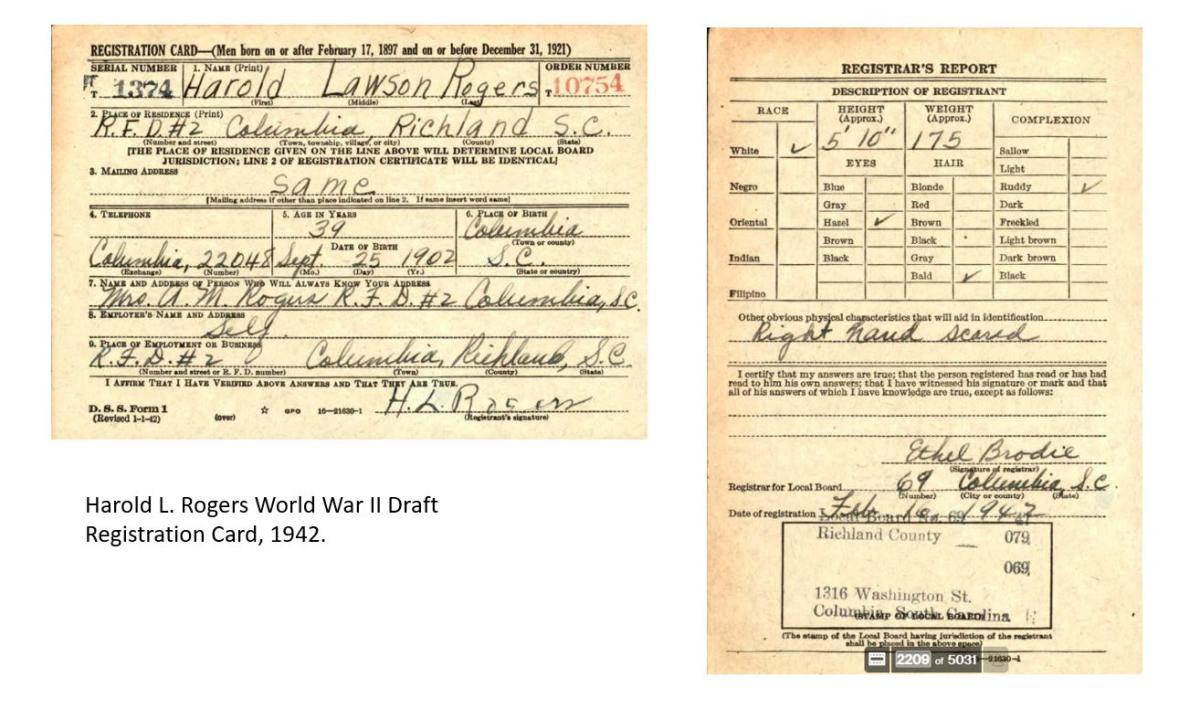 REGISTRATION CARD—(Men born on or after February 17, 1897 and on or before December 31, 1921)
SERIAL NUMBER 1. NAME (Print) ORDER NUMBER
T 1374 Harold Lawson Rogers T 10754
(First) (Middle) (Last)
2. PLACE OF RESIDENCE (Print)
R.F.D.#2 Columbia, Richland S.C.
(Number and street) (Town, township, village, or city) (County) (State)
[THE PLACE OF RESIDENCE GIVEN ON THE LINE ABOVE WILL DETERMINE LOCAL BOARD
JURISDICTION; LINE 2 OF REGISTRATION CERTIFICATE WILL BE IDENTICAL]
3. MAILING ADDRESS
same
[Mailing address if other than place indicated on line 2. If same insert word same]
4. TELEPHONE 5. AGE IN YEARS 6. PLACE OF BIRTH
39 Columbia
DATE OF BIRTH (Town or county)
Columbia, 22048 Sept. 25 1902 S.C.
(Exchange) (Number) (Mo.) (Day) (Yr.) (State or country)
7. NAME AND ADDRESS OF PERSON WHO WILL ALWAYS KNOW YOUR ADDRESS
Mrs. A. M. Rogers R.F.D. #2 Columbia, S.C.
8. EMPLOYER'S NAME AND ADDRESS
Self
9. PLACE OF EMPLOYMENT OR BUSINESS
R.F.D. #2 Columbia, Richland, S.C
(Number and street or R. F. D. number) (Town) (County) (State)
I AFFIRM THAT I HAVE VERIFIED ABOVE ANSWERS AND THAT THEY ARE TRUE.
D. S. S. Form 1
(Revised 1-1-42) (over) ☆ GPO 16—21630-1 H L Rogers
(Registrant's signature)
Harold L. Rogers World War II Draft
Registration Card, 1942.
REGISTRAR'S REPORT
DESCRIPTION OF REGISTRANT
RACE HEIGHT (Approx.) WEIGHT (Approx.) COMPLEXION
White ✓ 5' 10" 175 Sallow
EYES HAIR Light
Negro Blue Blonde Ruddy ✓
Gray Red Dark
Oriental Hazel ✓ Brown Freckled
Brown Black Light brown
Indian Black Gray Dark brown
Bald ✓ Black
Filipino
Other obvious physical characteristics that will aid in identification
Right hand scared
I certify that my answers are true; that the person registered has read or has had
read to him his own answers; that I have witnessed his signature or mark and that
all of his answers of which I have knowledge are true, except as follows:
Ethel Brodie
(Signature of registrar)
Registrar for Local Board 69 Columbia, S.C.
(Number) (City or county) (State)
Date of registration Feb. 16 1942
Local Board No. 69
Richland County 079
069
1316 Washington St.
Columbia, South Carolina
(STAMP OF LOCAL BOARD)
(The stamp of the Local Board having jurisdiction of the registrant
shall be placed in the above space)
2209 of 5031 21630-1